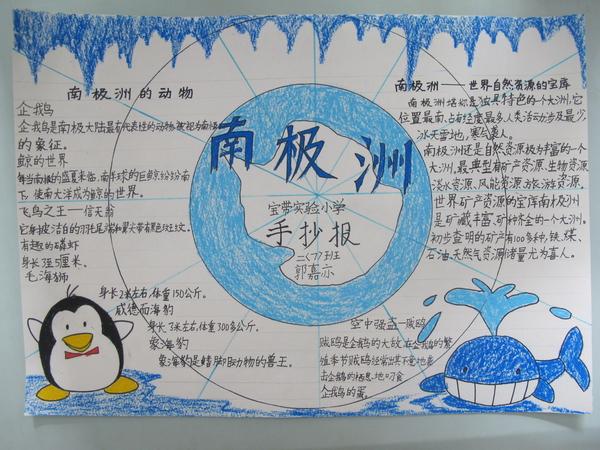 南极洲的动物
企我鸟
企我鸟是南极大陆最有代表性的动物,被视为南极
的象征。
鲸的世界
每当南极的盛夏来临,南半球的巨鲸纷纷南
下,使南大洋成为鲸的世界。
飞鸟之王——信天翁
它身披洁白的羽毛尾端和翼尖带有黑色斑纹。
有趣的磷虾
身长 厘米。
毛海狮
身长2米左右,体重150公斤。
威德而海豹
身长3米左右,体重300多公斤。
象海豹
象海豹是鳍脚动物的兽王。
南极洲
宝带实验小学
手抄报
二(7)班
郭嘉示
南极洲——世界自然资源的宝库
南极洲堪称是独具特色的一个大洲,它
位置最南,占有经度最多人类活动涉及最少
冰天雪地,寒气袭人。
南极洲还是自然资源极为丰富的一个
大洲,最典型有矿产资源、生物资源、
淡水资源、风能资源、旅游资源。
世界矿产资源的宝库南极洲
是矿藏丰富、矿种齐全的一个大洲。
初步查明的矿产有100多种,铁、煤、
石油、天然气资源储量尤为喜人。
空中强盗—贼鸥
贼鸥是企鹅的大敌,在企鹅的繁
殖季节贼鸥经常出其不意地袭
击企鹅的栖息地,叼食
企我鸟的蛋。